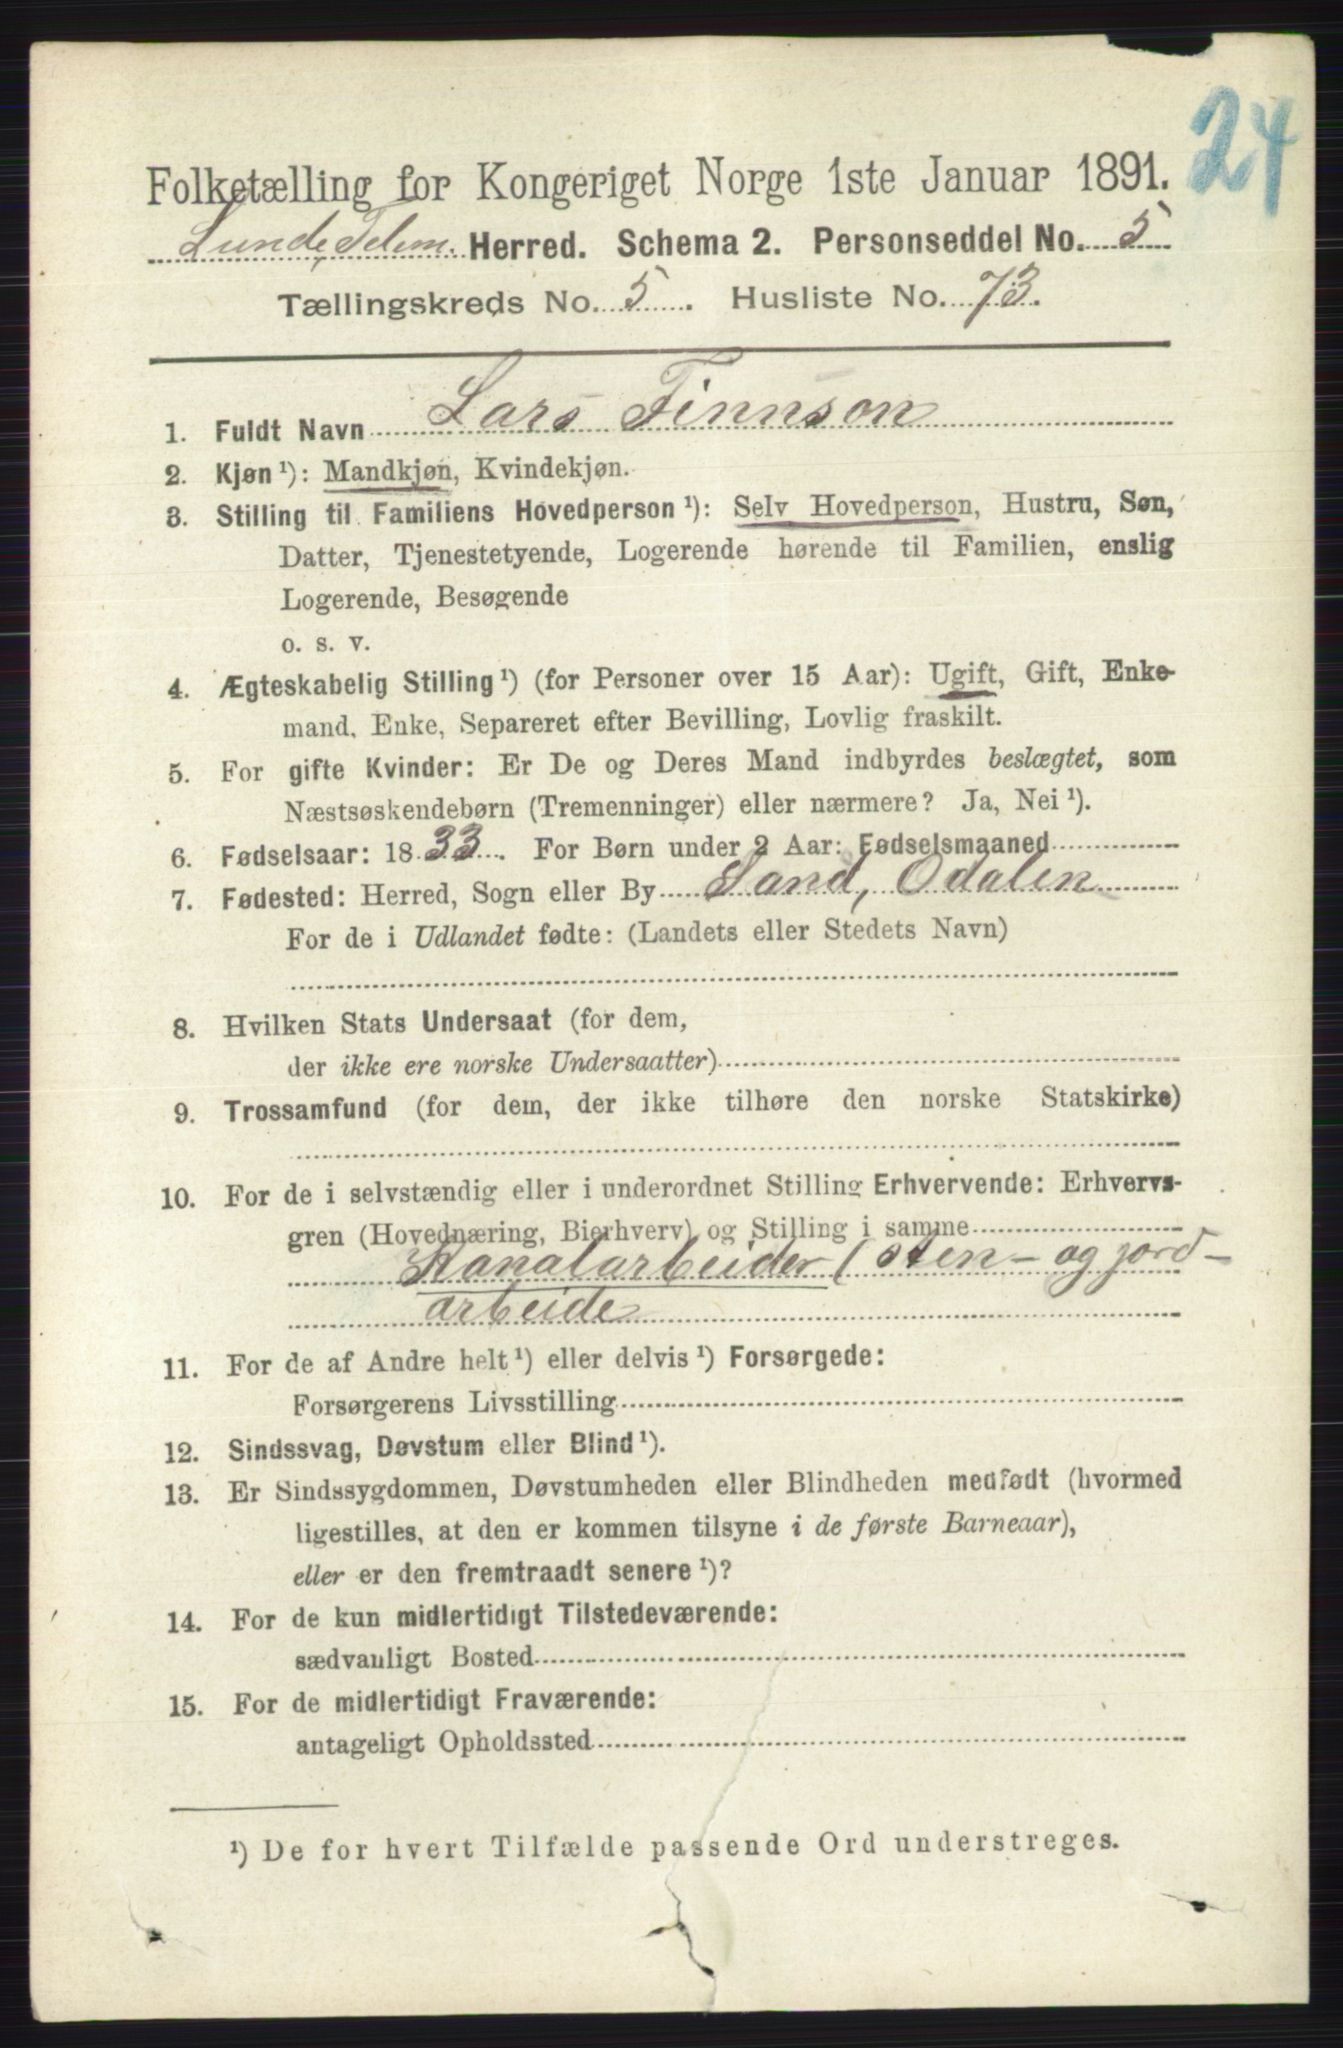 24
Folketælling for Kongeriget Norge 1ste Januar 1891.
Lunde, Telem. Herred. Schema 2. Personseddel No. 5
Tællingskreds No. 5. Husliste No. 73.
1. Fuldt Navn Lars Finnson
2. Kjøn ¹): Mandkjøn, Kvindekjøn.
3. Stilling til Familiens Hovedperson ¹): Selv Hovedperson, Hustru, Søn,
Datter, Tjenestetyende, Logerende hørende til Familien, enslig
Logerende, Besøgende
o. s. v.
4. Ægteskabelig Stilling ¹) (for Personer over 15 Aar): Ugift, Gift, Enke-
mand, Enke, Separeret efter Bevilling, Lovlig fraskilt.
5. For gifte Kvinder: Er De og Deres Mand indbyrdes beslægtet, som
Næstsøskendebørn (Tremenninger) eller nærmere? Ja, Nei ¹).
6. Fødselsaar: 1833. For Børn under 2 Aar: Fødselsmaaned
7. Fødested: Herred, Sogn eller By Sand, Odalen
For de i Udlandet fødte: (Landets eller Stedets Navn)
8. Hvilken Stats Undersaat (for dem,
der ikke ere norske Undersaatter)
9. Trossamfund (for dem, der ikke tilhøre den norske Statskirke)
10. For de i selvstændig eller i underordnet Stilling Erhvervende: Erhvervs-
gren (Hovednæring, Bierhverv) og Stilling i samme
Kanalarbeider (sten- og jord-
arbeide
11. For de af Andre helt ¹) eller delvis ¹) Forsørgede:
Forsørgerens Livsstilling
12. Sindssvag, Døvstum eller Blind ¹).
13. Er Sindssygdommen, Døvstumheden eller Blindheden medfødt (hvormed
ligestilles, at den er kommen tilsyne i de første Barneaar),
eller er den fremtraadt senere ¹)?
14. For de kun midlertidigt Tilstedeværende:
sædvanligt Bosted
15. For de midlertidigt Fraværende:
antageligt Opholdssted
¹) De for hvert Tilfælde passende Ord understreges.